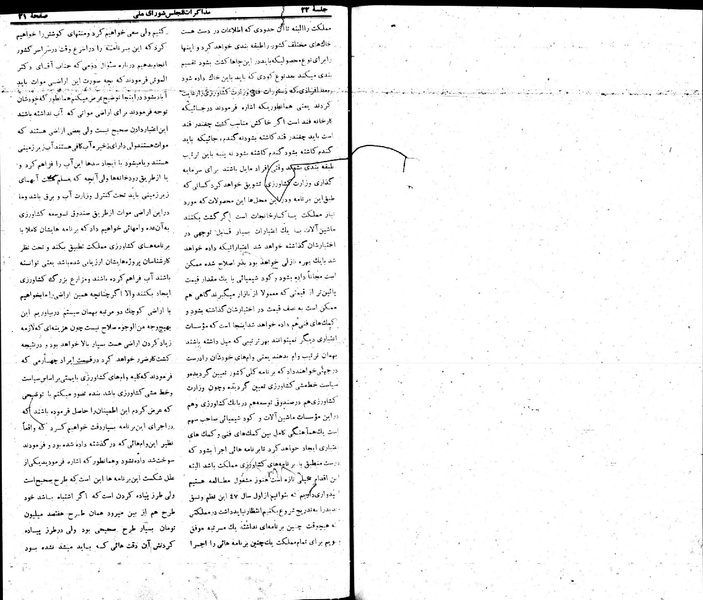 جلسهٔ ۲۳
مذاکرات مجلس شورای ملی
صفحهٔ ۳۱
مملکت را البته تا آن حدودی که اطلاعات در دست هست
خاک‌های مختلف کشور را طبقه بندی خواهد کرد و اینها
را برای نوع محصولیکه باید در این جاها کشت بشود تقسیم
بندی میکند بعد نوع کودی که باید باین خاک داده شود
کردند یعنی همانطوریکه اشاره فرمودند در جائیکه
کارخانه قند است اگر خاکش مناسب کشت چغندر قند
است باید چغندر قند کاشته بشود نه گندم، جائیکه باید
گندم کاشته بشود گندم کاشته بشود نه پنبه باین ترتیب
طبقه بندی بشود وقتی افراد مایل باشند برای سرمایه
گذاری وزارت کشاورزی تشویق خواهد کرد کسانی که
طبق این برنامه و در این محل‌ها این محصولات که مورد
نیاز مملکت یا کارخانجات است اگر کشت بکنند
ماشین آلات با یک اعتبارات بسیار قابل توجهی در
اختیارشان گذاشته خواهد شد اعتباراتیکه داده خواهد
شد با یک بهره نازلی خواهد بود بذر اصلاح شده ممکن
است مجاناً داده بشود و کود شیمیائی با یک مقدار قیمت
پائین‌تر از قیمتی که معمولا از بازار میگیرند گاهی هم
ممکن است به نصف قیمت در اختیارشان گذاشته بشود و
کمک‌های فنی هم داده خواهد شد اینجا است که مؤسسات
اعتباری دیگر نمیتوانند بهر ترتیبی که میل داشته باشند
بهمان ترتیب وام بدهند یعنی وام‌های خودشان را درست
در جهتی خواهند داد که برنامه کلی کشور تعیین گردیده و
سیاست خط‌مشی کشاورزی تعیین گردیده و چون وزارت
کشاورزی هم در صندوق توسعه هم در بانک کشاورزی و هم
در این مؤسسات ماشین آلات و کود شیمیائی صاحب سهم
است یک هم‌آهنگی کامل بین کمک‌های فنی و کمک های
اعتباری ایجاد خواهد کرد تا برنامه هائی اجرا بشود که
درست منطبق با برنامه‌های کشاورزی مملکت باشد البته
این اقدام خیلی تازه است هنوز مشغول مطالعه هستیم
امیدواریم که بتوانیم از اول سال ۴۷ این نظم و نسق
جدید را بتدریج شروع بکنیم انتظار نباید داشت در مملکتی
که هیچوقت چنین برنامه‌ای نداشته یک مرتبه موفق
بشویم برای تمام مملکت یک چنین برنامه هائی را اجرا
کنیم ولی سعی خواهیم کرد و منتهای کوشش را خواهیم
کرد که این برنامه را در اسرع وقت در سراسر کشور
انجام بدهیم درباره سئوال دومی که جناب آقای دکتر
الموتی فرمودند که بچه صورت این اراضی موات باید
آباد بشود در اینجا توضیح عرض میکنم همانطور که خودشان
توجه فرمودند برای اراضی مواتی که آب نداشته باشند
این اعتبار دادن صحیح نیست ولی بعضی اراضی هستند که
موات هستند ولی دارای ذخیره آب کافی هستند آب زیرزمینی
هستند و یا میشود با ایجاد سدها این آب را فراهم کرد و
یا از طریق رودخانه‌ها ولی آنچه که مسلم است آبهای
زیرزمینی باید تحت کنترل وزارت آب و برق باشد و ما
در این اراضی موات از طریق صندوق توسعه کشاورزی
به آن عده وامهائی خواهیم داد که برنامه هایشان کاملا با
برنامه‌های کشاورزی مملکت تطبیق بکند و تحت نظر
کارشناسان پروژه‌هایشان ارزیابی شده باشد یعنی توانسته
باشند آب فراهم کرده باشند و مزارع بزرگ کشاورزی
ایجاد بکنند والا اگر چنانچه همین اراضی را ما بخواهیم
با اراضی کوچک دو مرتبه بهمان سیستم دربیاوریم این
بهیچوجه من الوجوه صلاح نیست چون هزینه‌ای که لازمه
زیاد کردن اراضی هست بسیار بالا خواهد بود و در نتیجه
کشت کار ضرر خواهد کرد در قسمت ایراد چهارمی که
فرمودند که کلیه وام‌های کشاورزی بایستی بر اساس سیاست
و خط مشی کشاورزی باشد بنده تصور میکنم با توضیحی
که عرض کردم این اطمینان را حاصل فرموده باشند که
در اجرای این برنامه بسیار دقت خواهیم کرد که واقعاً
نظیر این وام‌هائی که در گذشته داده شده بود و فرمودند
سوخت شد داده نشود و همانطور که اشاره فرمودید یکی از
علل شکست این برنامه ها این است که طرح صحیح است
ولی طرز پیاده کردن است که اگر اشتباه باشد خود
طرح هم از بین میرود همان طرح هفتصد میلیون
تومان بسیار طرح صحیحی بود ولی در طرز پیاده
کردنش آن دقت هائی که باید میشد نشده بود